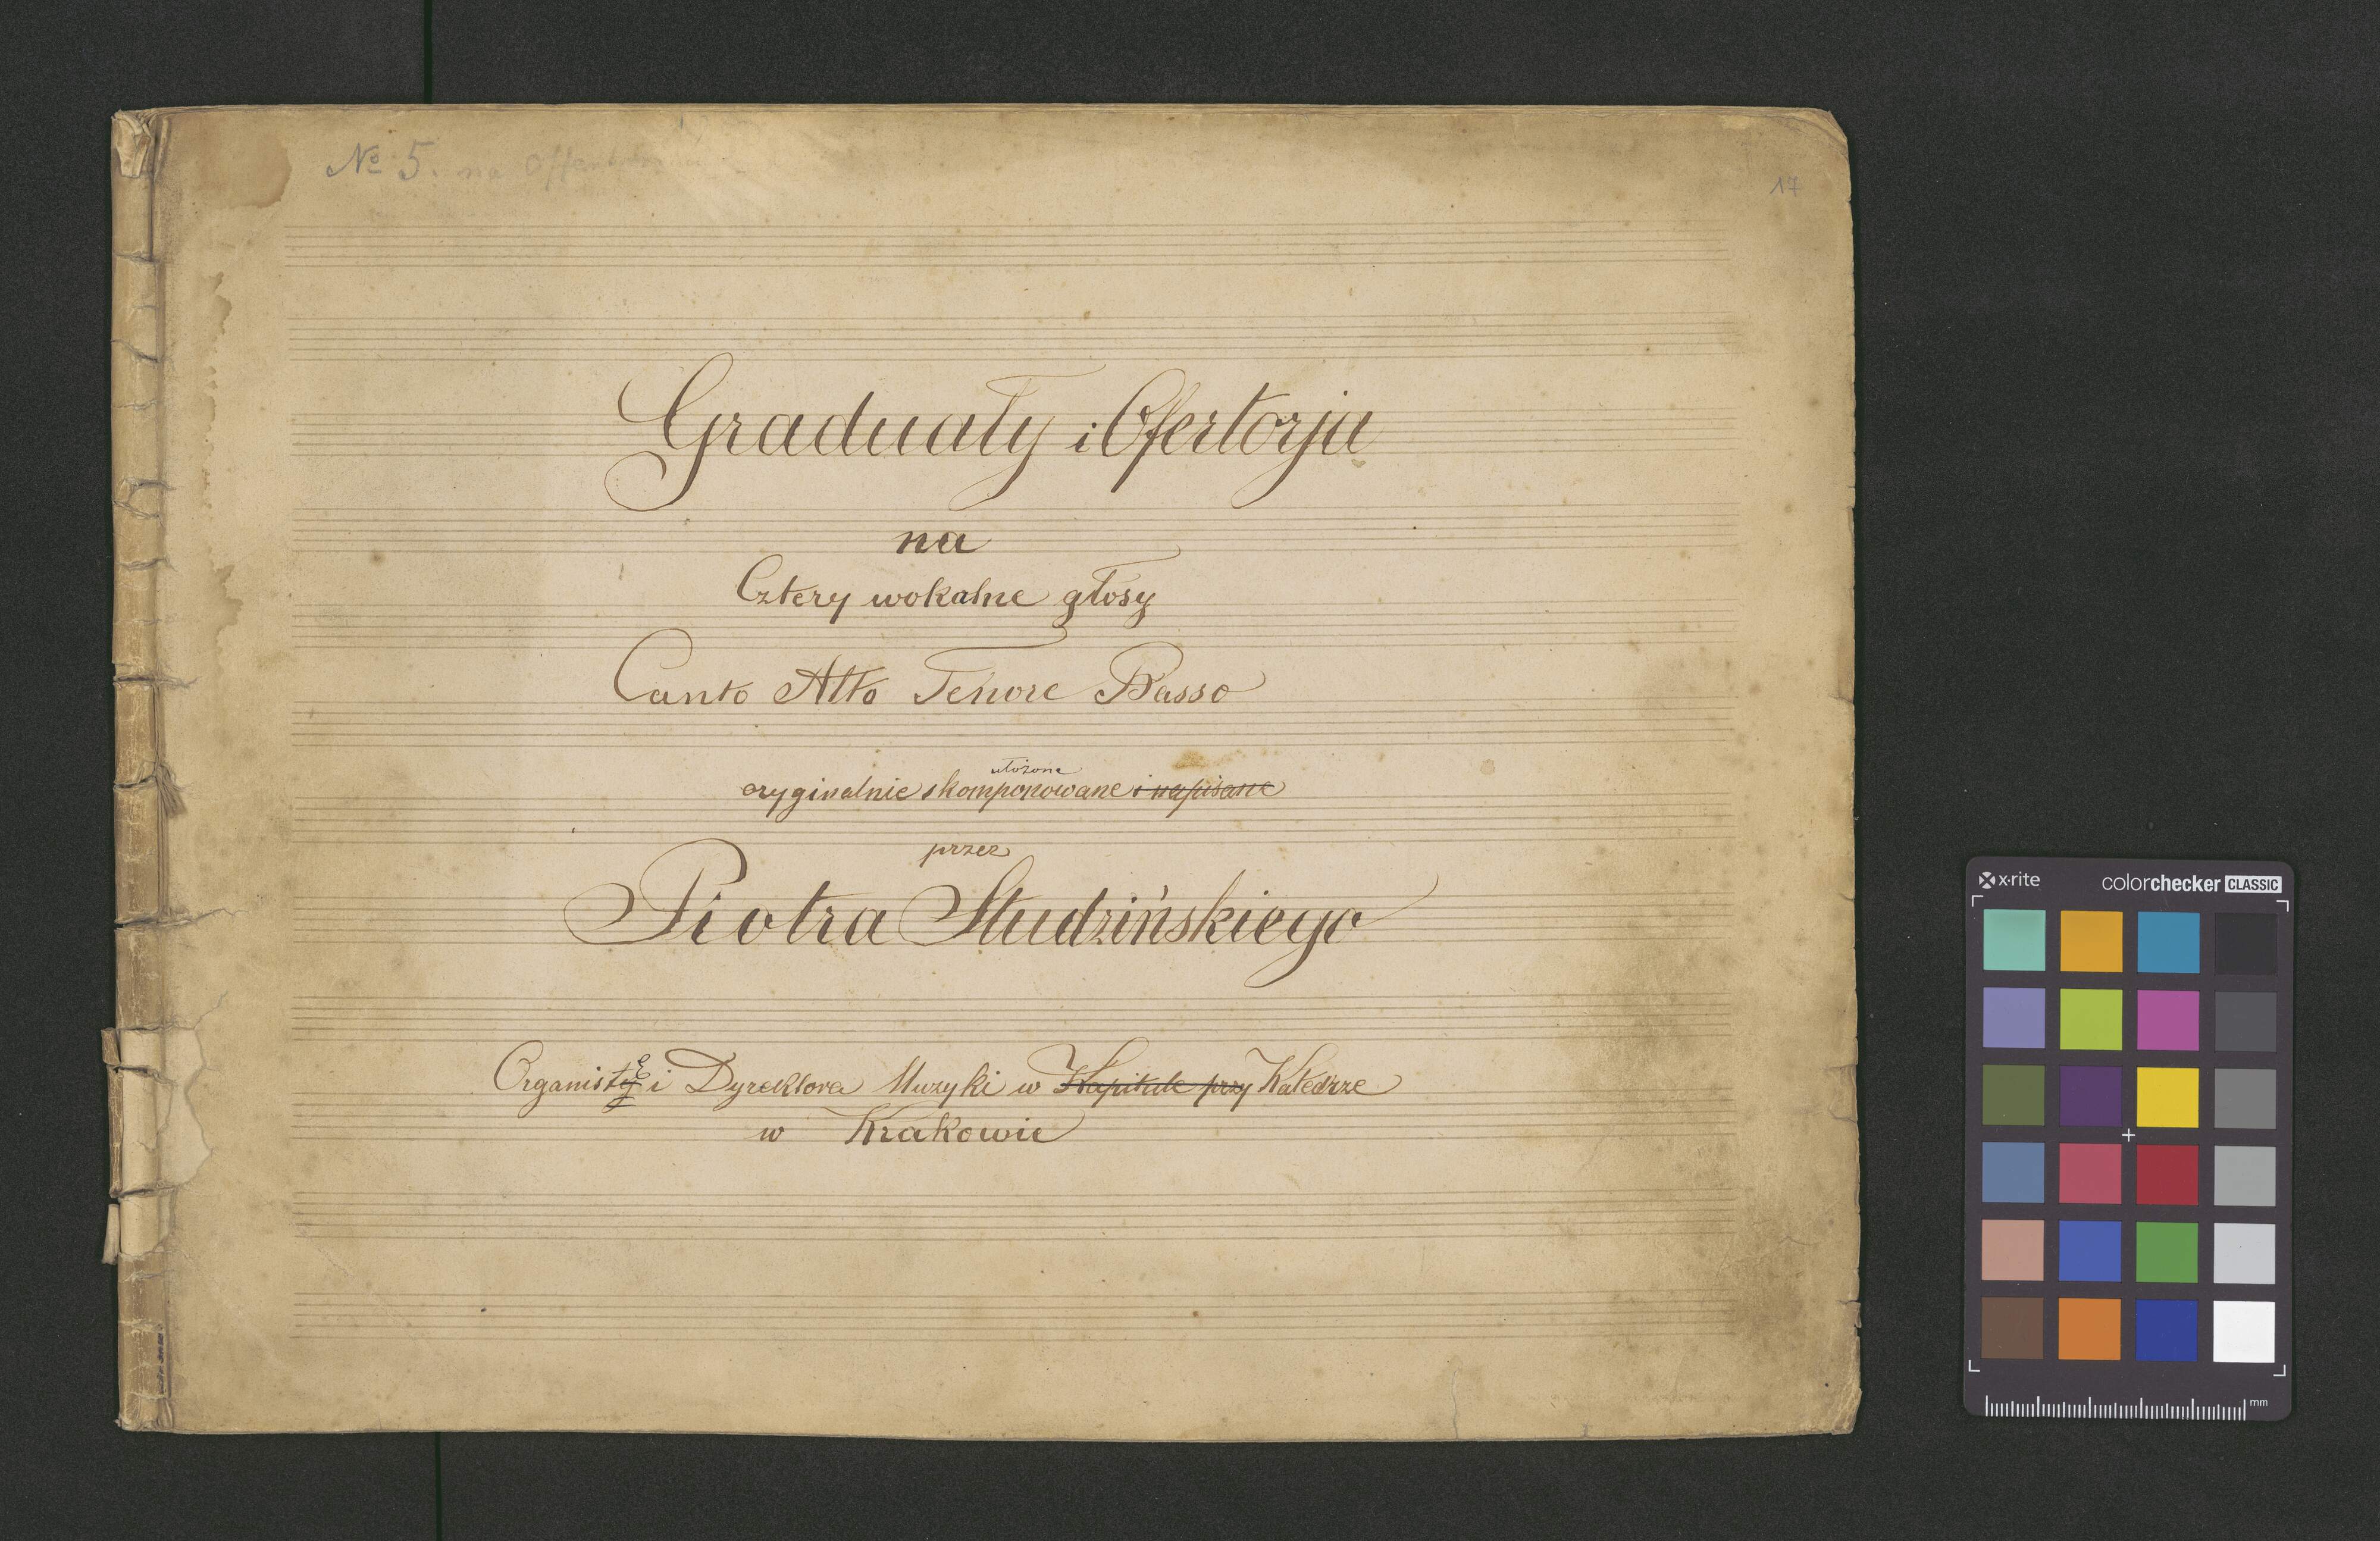 № 5. na Offert
17
Graduały i Ofertorja
na
Cztery wokalne głosy
Canto Alto Tenore Basso
ułożone
oryginalnie skomponowane i napisane
przez
Piotra Studzińskiego
Organisty i Dyrektora Muzyki w Kapitule przy Katedrze
w Krakowie
x·rite colorchecker CLASSIC
mm